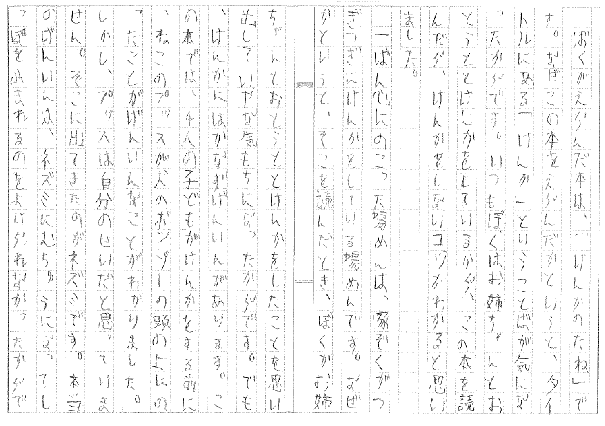 ぼくがえらんだ本は、「けんかのたね」で
す。なぜこの本をえらんだかというと、タイ
トルにある「けんか」ということばが気になっ
たからです。いつもぼくはお姉ちゃんとお
とうととけんかをしているから、この本を読
んだら、けんかをしないコツがわかると思い
ました。
一ばん心にのこった場めんは、家ぞくがつ
ぎつぎにけんかをしている場めんです。なぜ
かというと、そこを読んだとき、ぼくがお姉
ちゃんとおとうととけんかをしたことを思い
出して、いやな気もちになったからです。でも
、けんかにはかならずげんいんがあります。こ
の本では、4人の子どもがけんかをする前に
、ねこのプッスが犬のポンゾーの頭の上にのっ
たことがげんいんなことがわかりました。
しかし、プッスは自分のせいだと思っていま
せん。そこに出てきたのがネズミです。本当
のげんいんは、ネズミにむちゅうになって、し
っぽをふまれるのをよけられなかったからで